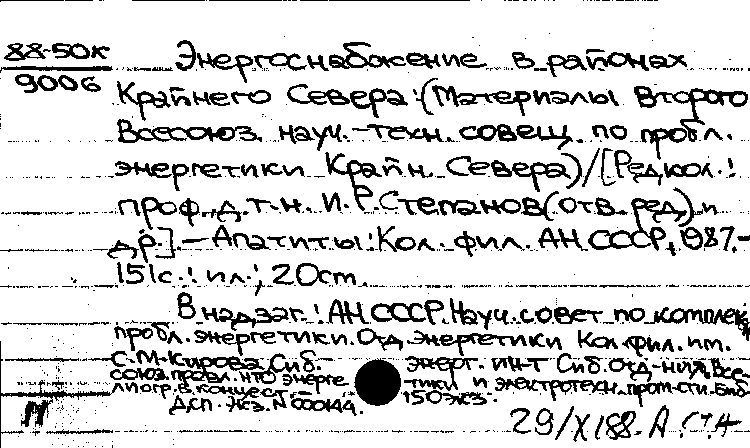 88-50к Энергоснабжение в районах
9006 Крайнего Севера:(Материалы Второго
Всесоюз. науч.-техн. совещ. по пробл.
энергетики Крайн. Севера)/[Редкол.:
проф., д.т.н. И.Р.Степанов(отв. ред.) и
др.].-Апатиты:Кол. фил. АН СССР, 1987.-
151с.: ил.; 20см.
В надзаг.: АН СССР. Науч. совет по комплек.
пробл. энергетики. Отд. энергетики Кол. фил. им.
С.М.Кирова, Сиб. энерг. ин-т Сиб. отд-ния, Все-
союз. правл. НТО энерге тики и электротехн. пром-сти.-Биб
лиогр. в конце ст.- 150экз.
Дсп. Экз. N 000144.
29/X 188. А.